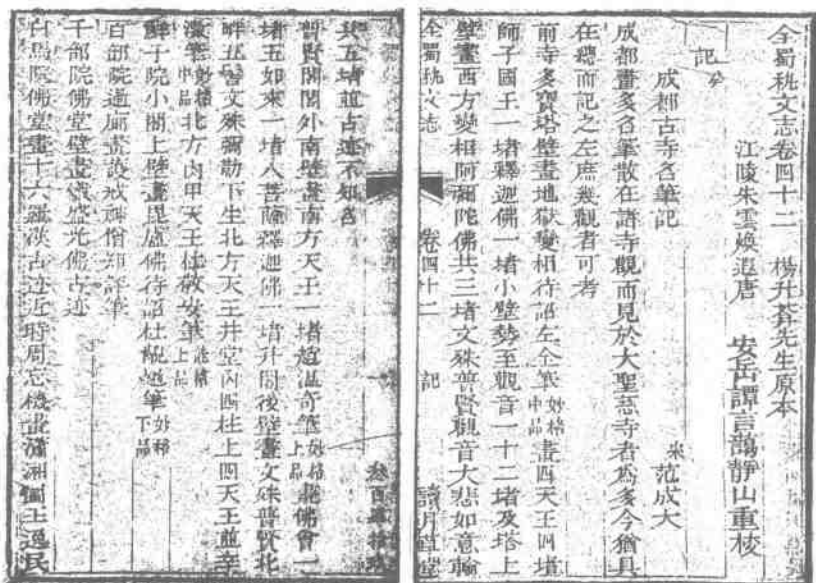 全蜀秇文志卷四十二 楊升菴先生原本
江陵朱雲煥遐唐 安岳譚言藹靜山重校
記
成都古寺名筆記
宋 范成大
成都畫多名筆散在諸寺觀而見於大聖慈寺者為多今猶具
在總而記之左庶幾觀者可考
前寺多寶塔壁畫地獄變相待詔左全筆妙格中品畫四天王四堵
師子國王一堵釋迦佛一堵小壁勢至觀音一十二堵及塔上
壁畫西方變相阿彌陀佛共三堵文殊普賢觀音大悲如意輪
全蜀秇文志 卷四十二 記
共五堵並古迹不知名
普賢閣閣外南壁畫南方天王一堵趙溫奇筆妙格上品北佛會一
堵五如來一堵八菩薩釋迦佛一堵并閣後壁畫文殊普賢北
畔五髻文殊彌勒下生北方天王井堂內四柱上四天王並辛
澄筆妙格中品北方肉甲天王杜敬安筆能格上品
鮮于院小閣上壁畫毘盧佛待詔杜觝道筆妙格下品
百部院過廊畫護戒神僧知評筆
千部院佛堂壁畫熾盛光佛古迹
白馬院佛堂畫十六羅漢古迹近時周忘機畫瀟湘獨王逸民